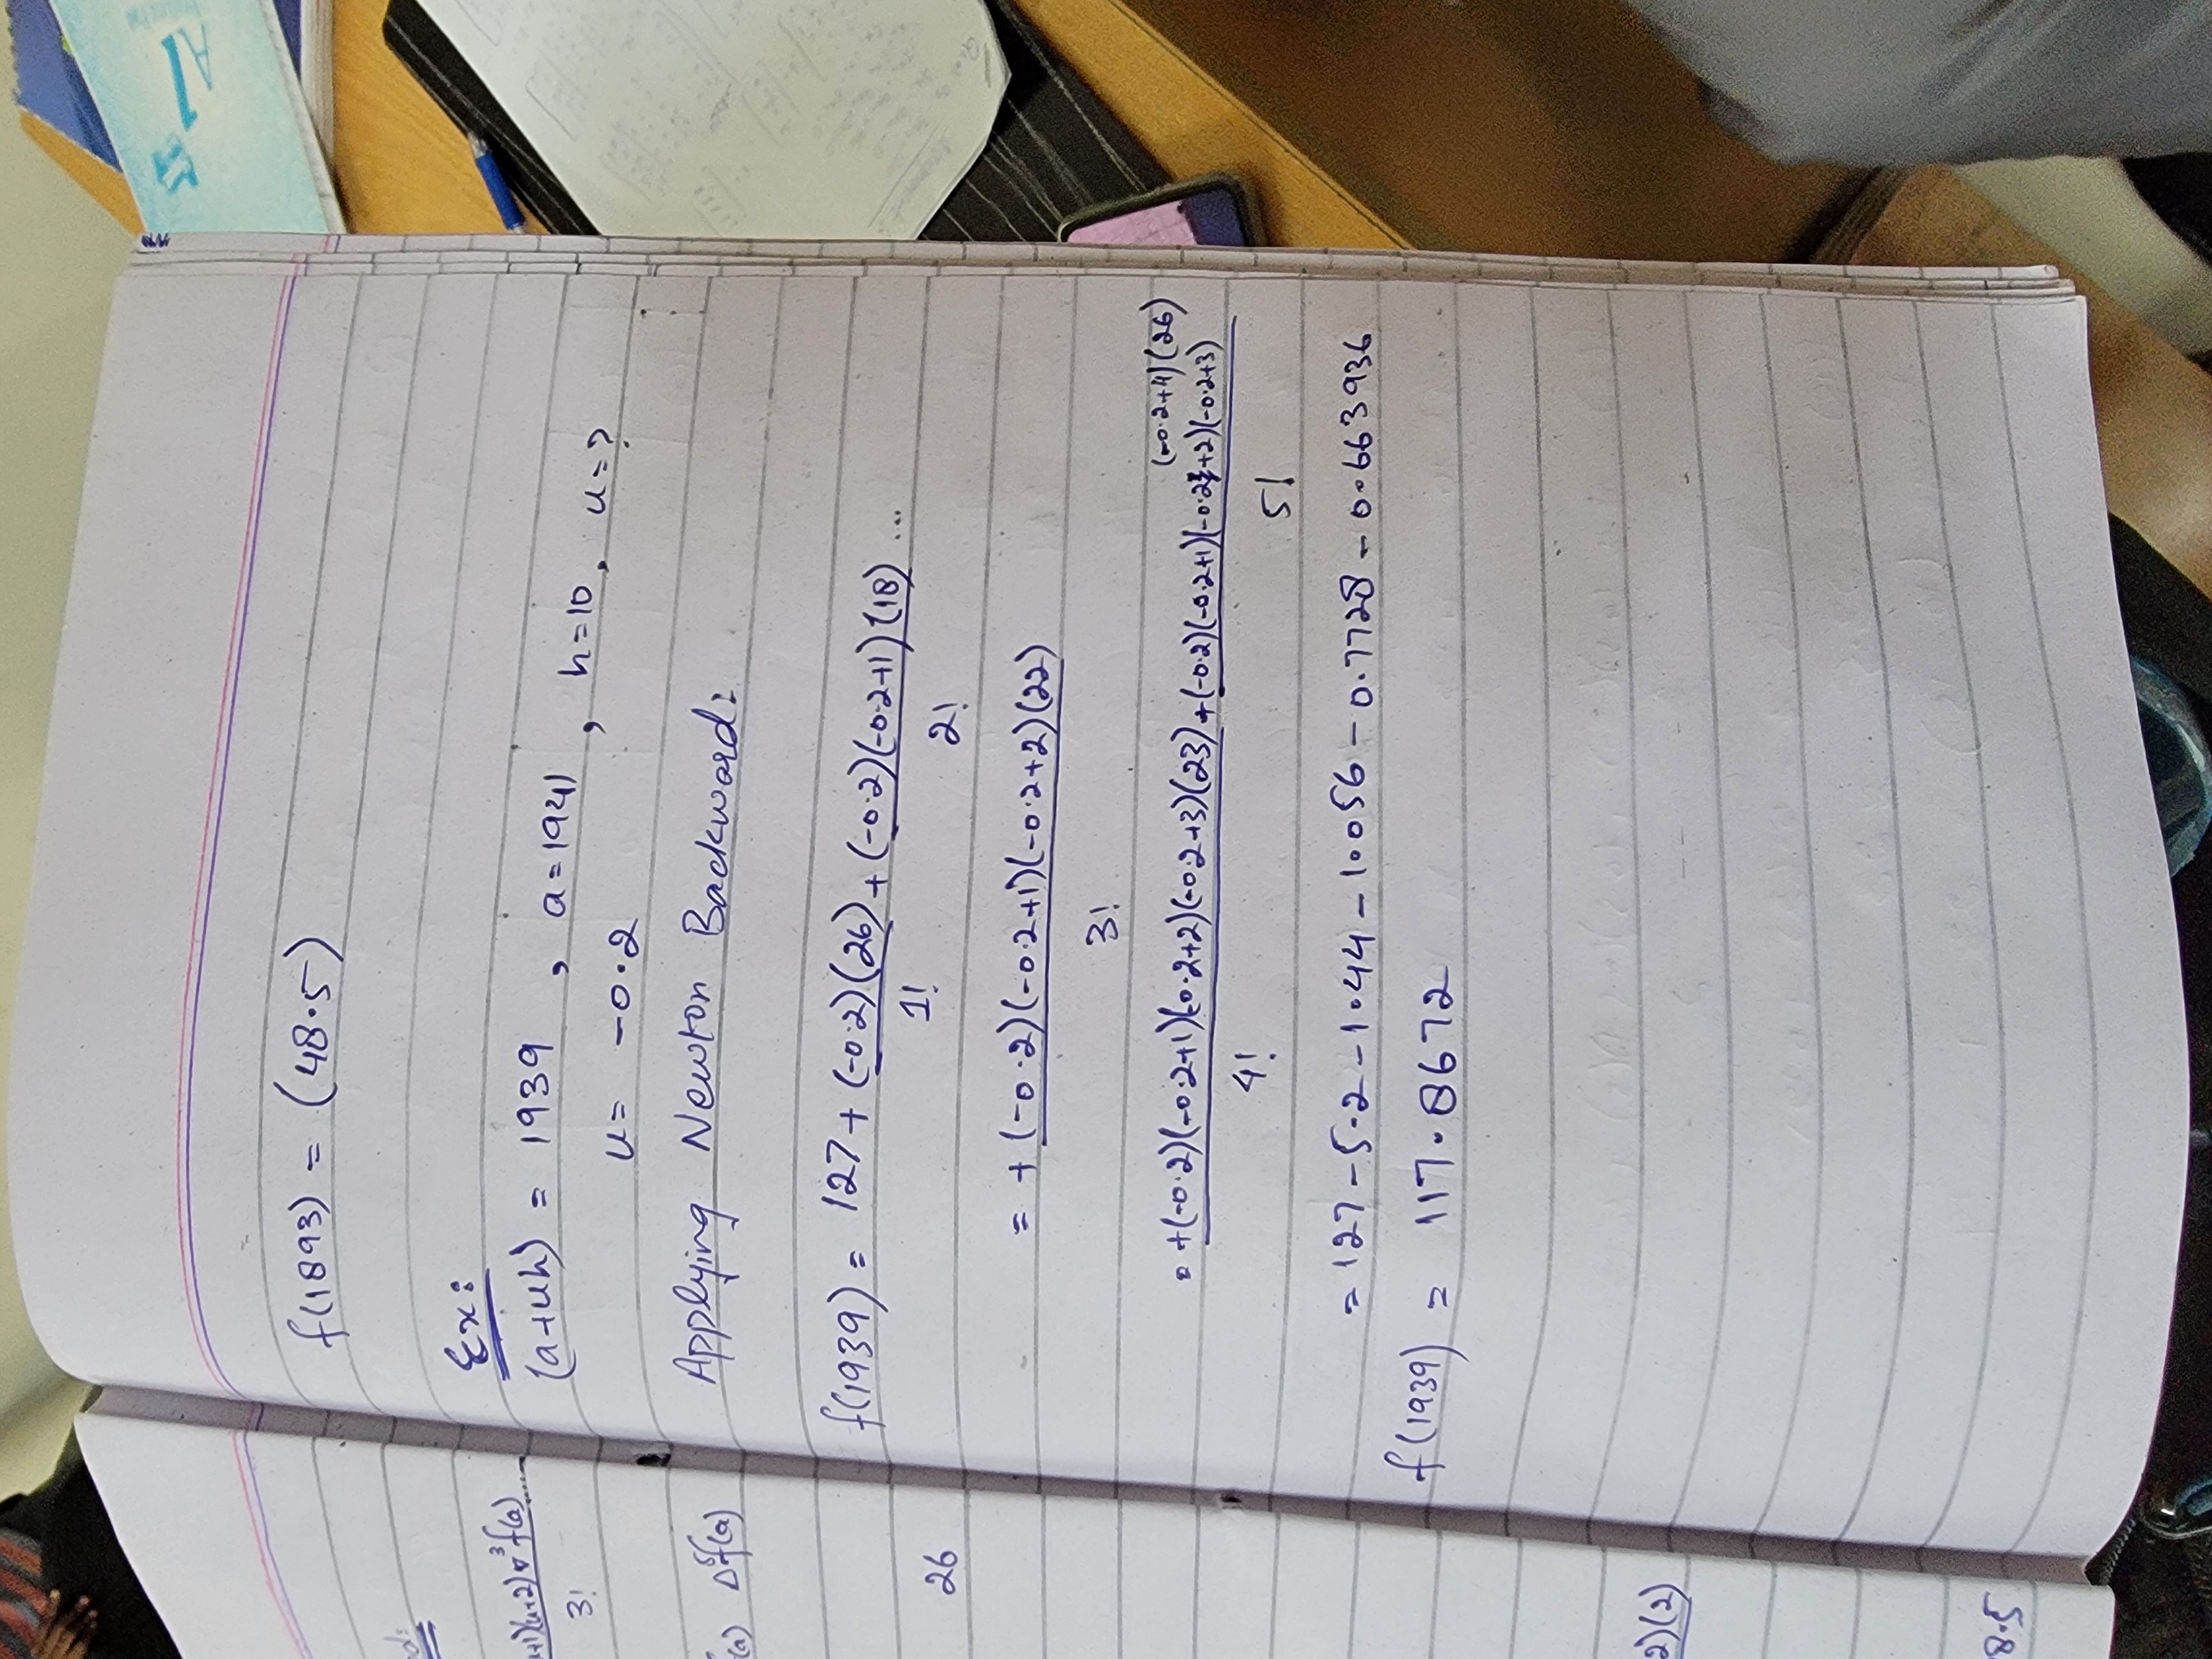 d:
u+1)(u+2)∇³f(a)....
3!
(a) Δ⁵f(a)
26
2)(2)
8.5
f(1893) = (48.5)
Ex:
(a+uh) = 1939 , a=1941 , h=10, u=?
u= -0.2
Applying Newton Backward:
f(1939) = 127 + (-0.2)(26) + (-0.2)(-0.2+1)(18) ...
1! 2!
= + (-0.2)(-0.2+1)(-0.2+2)(22)
3!
= +(-0.2)(-0.2+1)(-0.2+2)(-0.2+3)(23) + (-0.2)(-0.2+1)(-0.2+2)(-0.2+3) (-0.2+4)(26)
4! 5!
= 127 - 5.2 - 1.44 - 1.056 - 0.7728 - 0.663936
f(1939) = 117.8672
A1